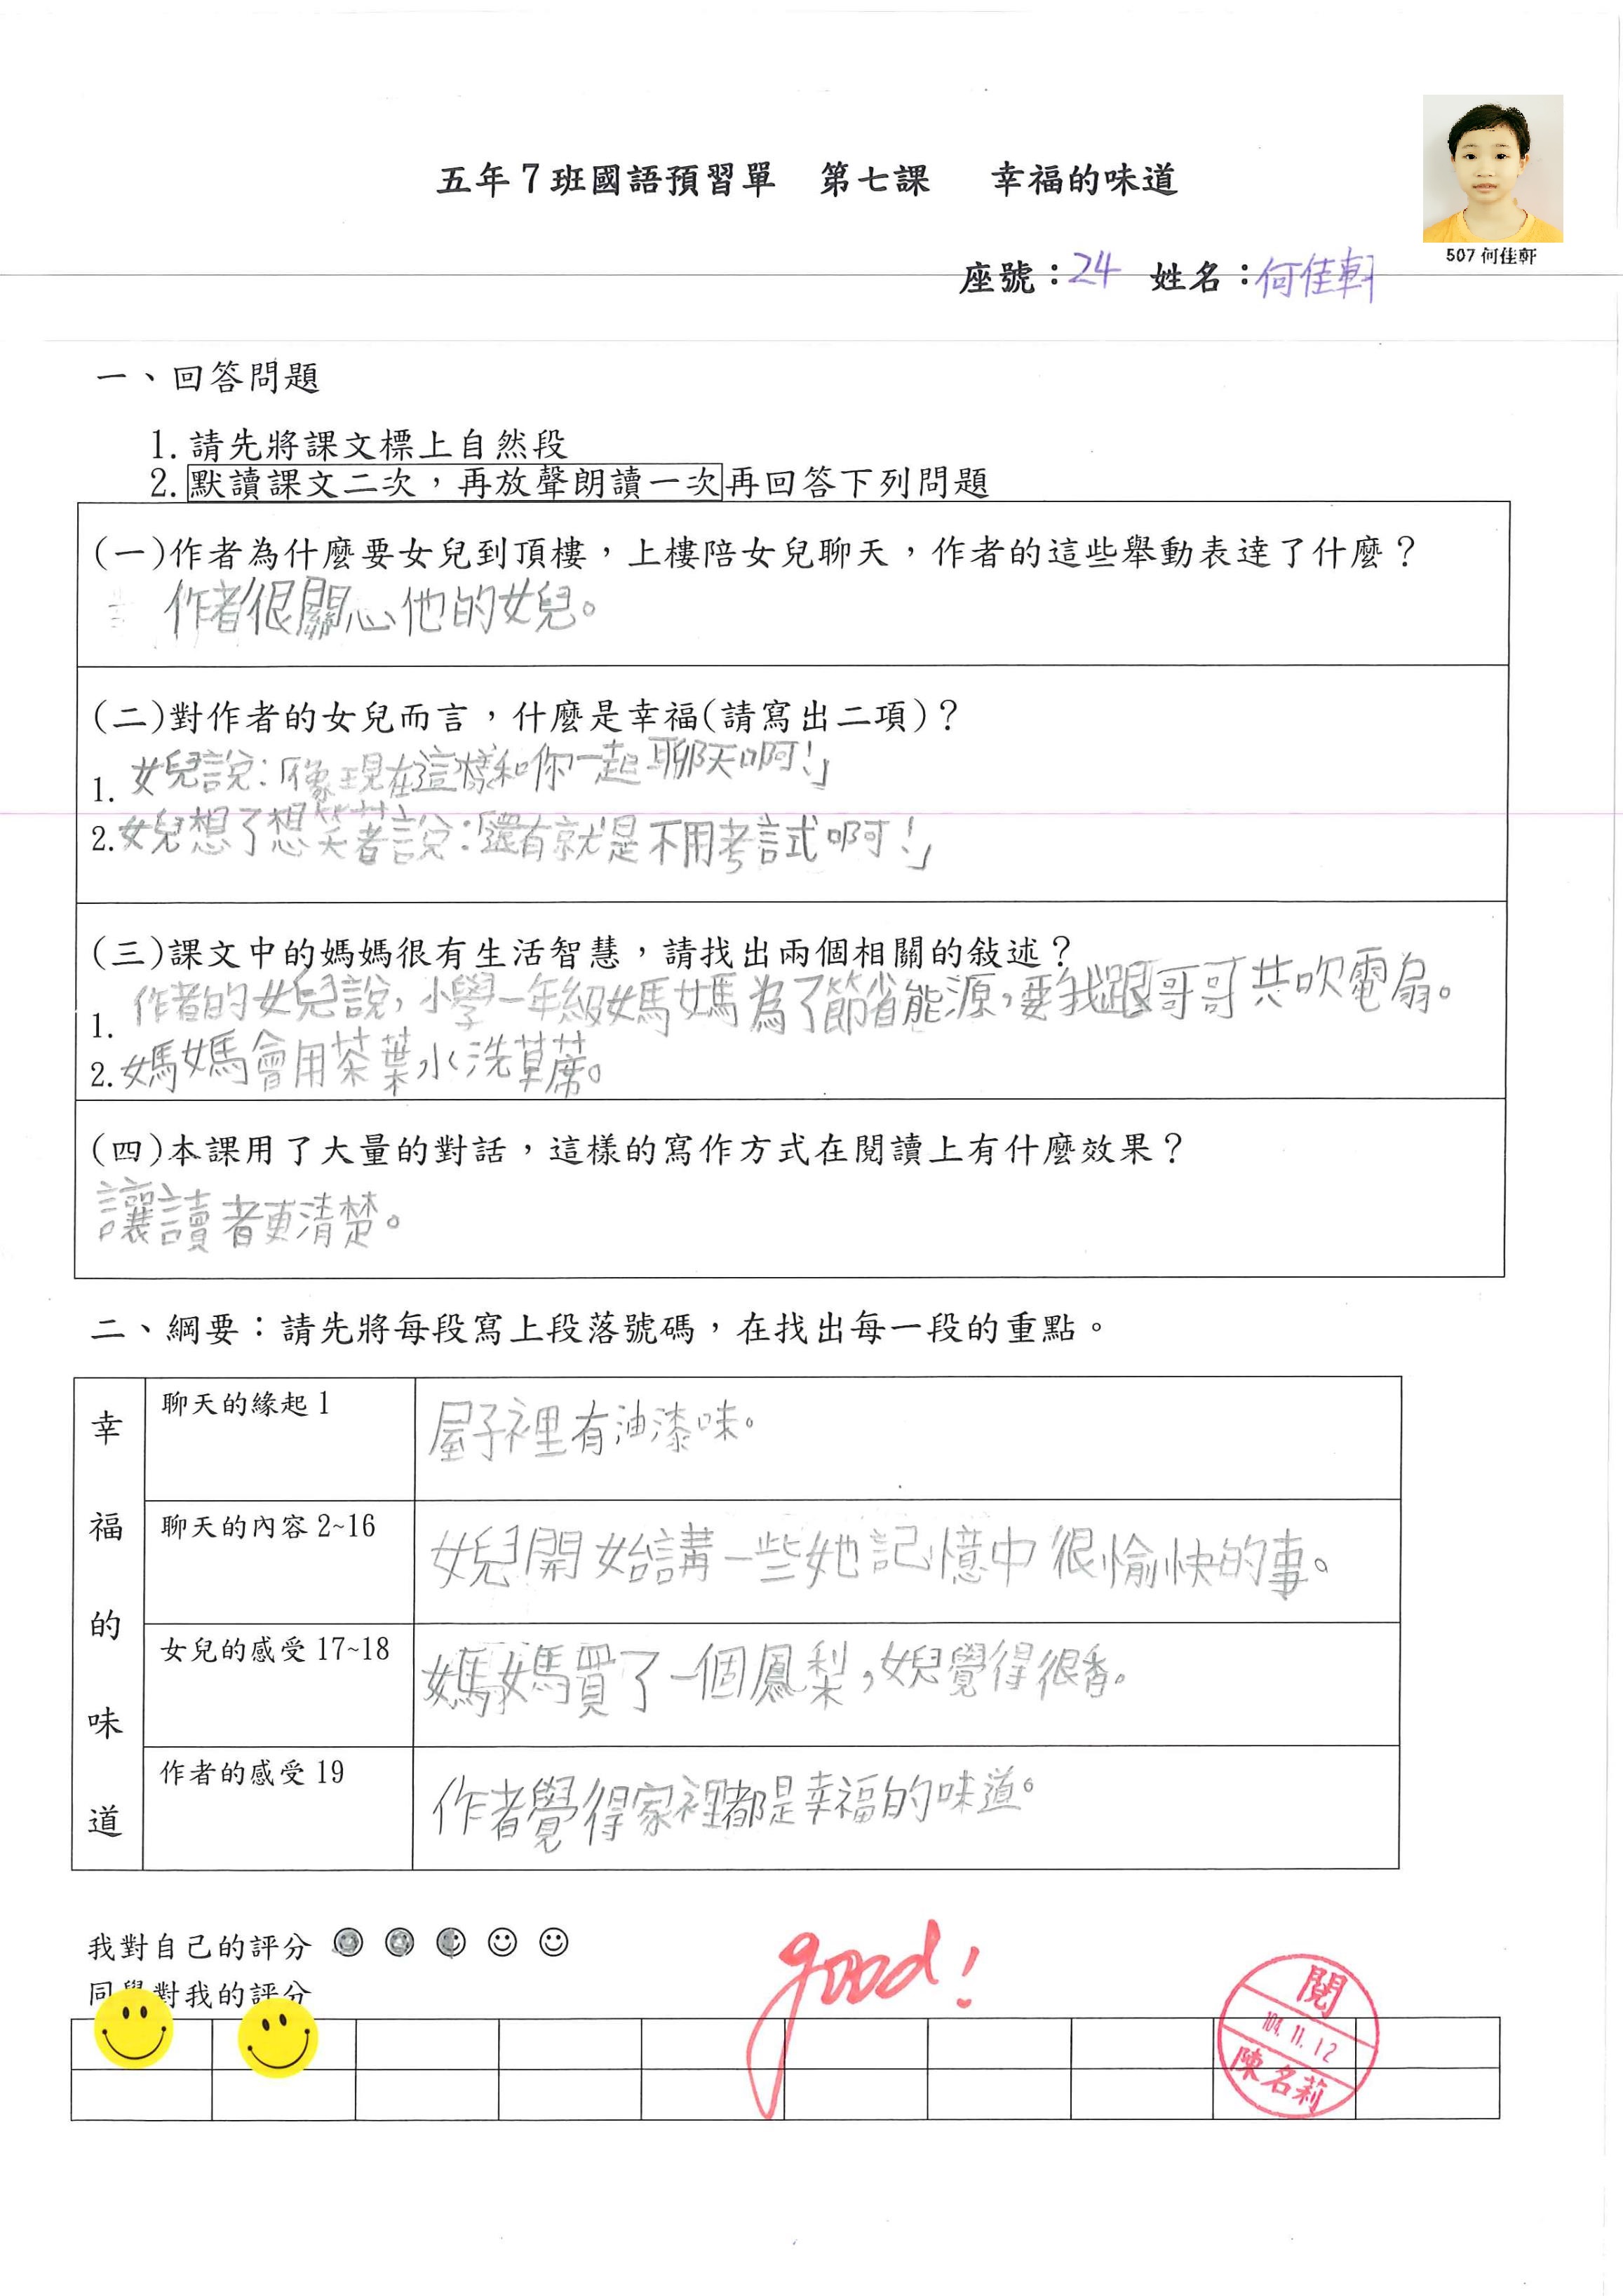 五年7班國語預習單 第七課 幸福的味道
507 何佳軒
座號：24 姓名：何佳軒
一、回答問題
1. 請先將課文標上自然段
2. 默讀課文二次，再放聲朗讀一次再回答下列問題
(一)作者為什麼要女兒到頂樓，上樓陪女兒聊天，作者的這些舉動表達了什麼？
作者很關心他的女兒。
(二)對作者的女兒而言，什麼是幸福(請寫出二項)？
1. 女兒說：「像現在這樣和你一起聊天啊！」
2. 女兒想了想笑著說：「還有就是不用考試啊！」
(三)課文中的媽媽很有生活智慧，請找出兩個相關的敍述？
1. 作者的女兒說，小學一年級媽媽為了節省能源，要我跟哥哥共吹電扇。
2. 媽媽會用茶葉水洗草蓆。
(四)本課用了大量的對話，這樣的寫作方式在閱讀上有什麼效果？
讓讀者更清楚。
二、綱要：請先將每段寫上段落號碼，在找出每一段的重點。
幸福的味道
聊天的緣起 1
屋子裡有油漆味。
聊天的內容 2~16
女兒開始講一些她記憶中很愉快的事。
女兒的感受 17~18
媽媽買了一個鳳梨，女兒覺得很香。
作者的感受 19
作者覺得家裡都是幸福的味道。
我對自己的評分
同學對我的評分
good!
閱
104.11.12
陳名莉